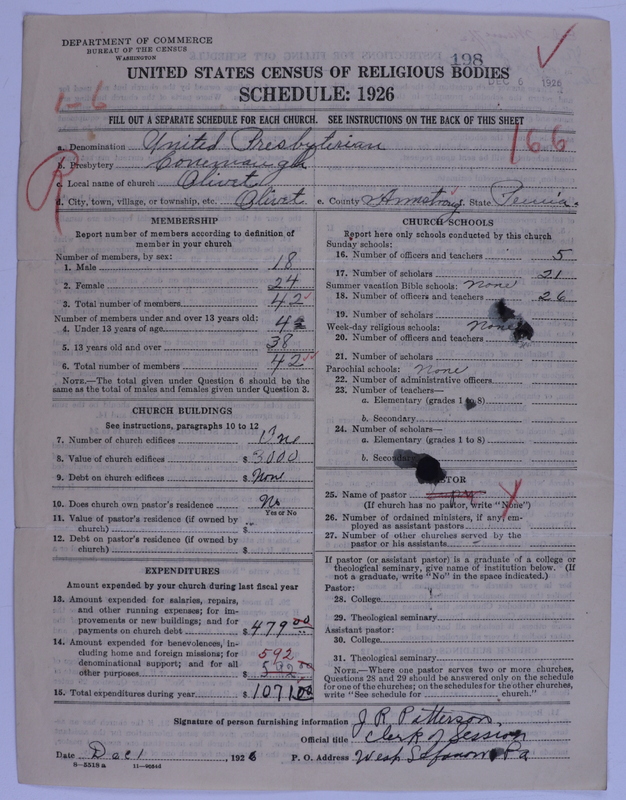 DEPARTMENT OF COMMERCE
BUREAU OF THE CENSUS
WASHINGTON
198
DEC 6 1926
UNITED STATES CENSUS OF RELIGIOUS BODIES
SCHEDULE: 1926
1-6
FILL OUT A SEPARATE SCHEDULE FOR EACH CHURCH. SEE INSTRUCTIONS ON THE BACK OF THIS SHEET
166
a. Denomination United Presbyterian
b. Presbytery Conemaugh
c. Local name of church Olivet
d. City, town, village, or township, etc. Olivet e. County Armstrong f. State Penna.
R
MEMBERSHIP
Report number of members according to definition of
member in your church
Number of members, by sex:
1. Male 18
2. Female 24
3. Total number of members 42
Number of members under and over 13 years old:
4. Under 13 years of age 4
5. 13 years old and over 38
6. Total number of members 42
NOTE.—The total given under Question 6 should be the
same as the total of males and females given under Question 3.
CHURCH BUILDINGS
See instructions, paragraphs 10 to 12
7. Number of church edifices One
8. Value of church edifices $3000
9. Debt on church edifices $None
10. Does church own pastor's residence No
Yes or No
11. Value of pastor's residence (if owned by
church) $
12. Debt on pastor's residence (if owned by
church) $
EXPENDITURES
Amount expended by your church during last fiscal year
13. Amount expended for salaries, repairs,
and other running expenses; for im-
provements or new buildings; and for
payments on church debt $479 00
14. Amount expended for benevolences, in-
cluding home and foreign missions; for
denominational support; and for all
other purposes $
592
15. Total expenditures during year $1071.00
CHURCH SCHOOLS
Report here only schools conducted by this church
Sunday schools:
16. Number of officers and teachers 5
17. Number of scholars 21
Summer vacation Bible schools: None
18. Number of officers and teachers 26
19. Number of scholars
Week-day religious schools: None
20. Number of officers and teachers
21. Number of scholars
Parochial schools: None
22. Number of administrative officers
23. Number of teachers—
a. Elementary (grades 1 to 8)
b. Secondary
24. Number of scholars—
a. Elementary (grades 1 to 8)
b. Secondary
PASTOR
25. Name of pastor
(If church has no pastor, write "None")
26. Number of ordained ministers, if any, em-
ployed as assistant pastors
27. Number of other churches served by the
pastor or his assistants
If pastor (or assistant pastor) is a graduate of a college or
theological seminary, give name of institution below. (If
not a graduate, write "No" in the space indicated.)
Pastor:
28. College
29. Theological seminary
Assistant pastor:
30. College
31. Theological seminary
NOTE.—Where one pastor serves two or more churches,
Questions 28 and 29 should be answered only on the schedule
for one of the churches; on the schedules for the other churches,
write "See schedule for church."
Signature of person furnishing information J R Patterson,
Official title Clerk of Session
Date Dec 1, 1926 P. O. Address West Pa
8-5518a 11-9664d